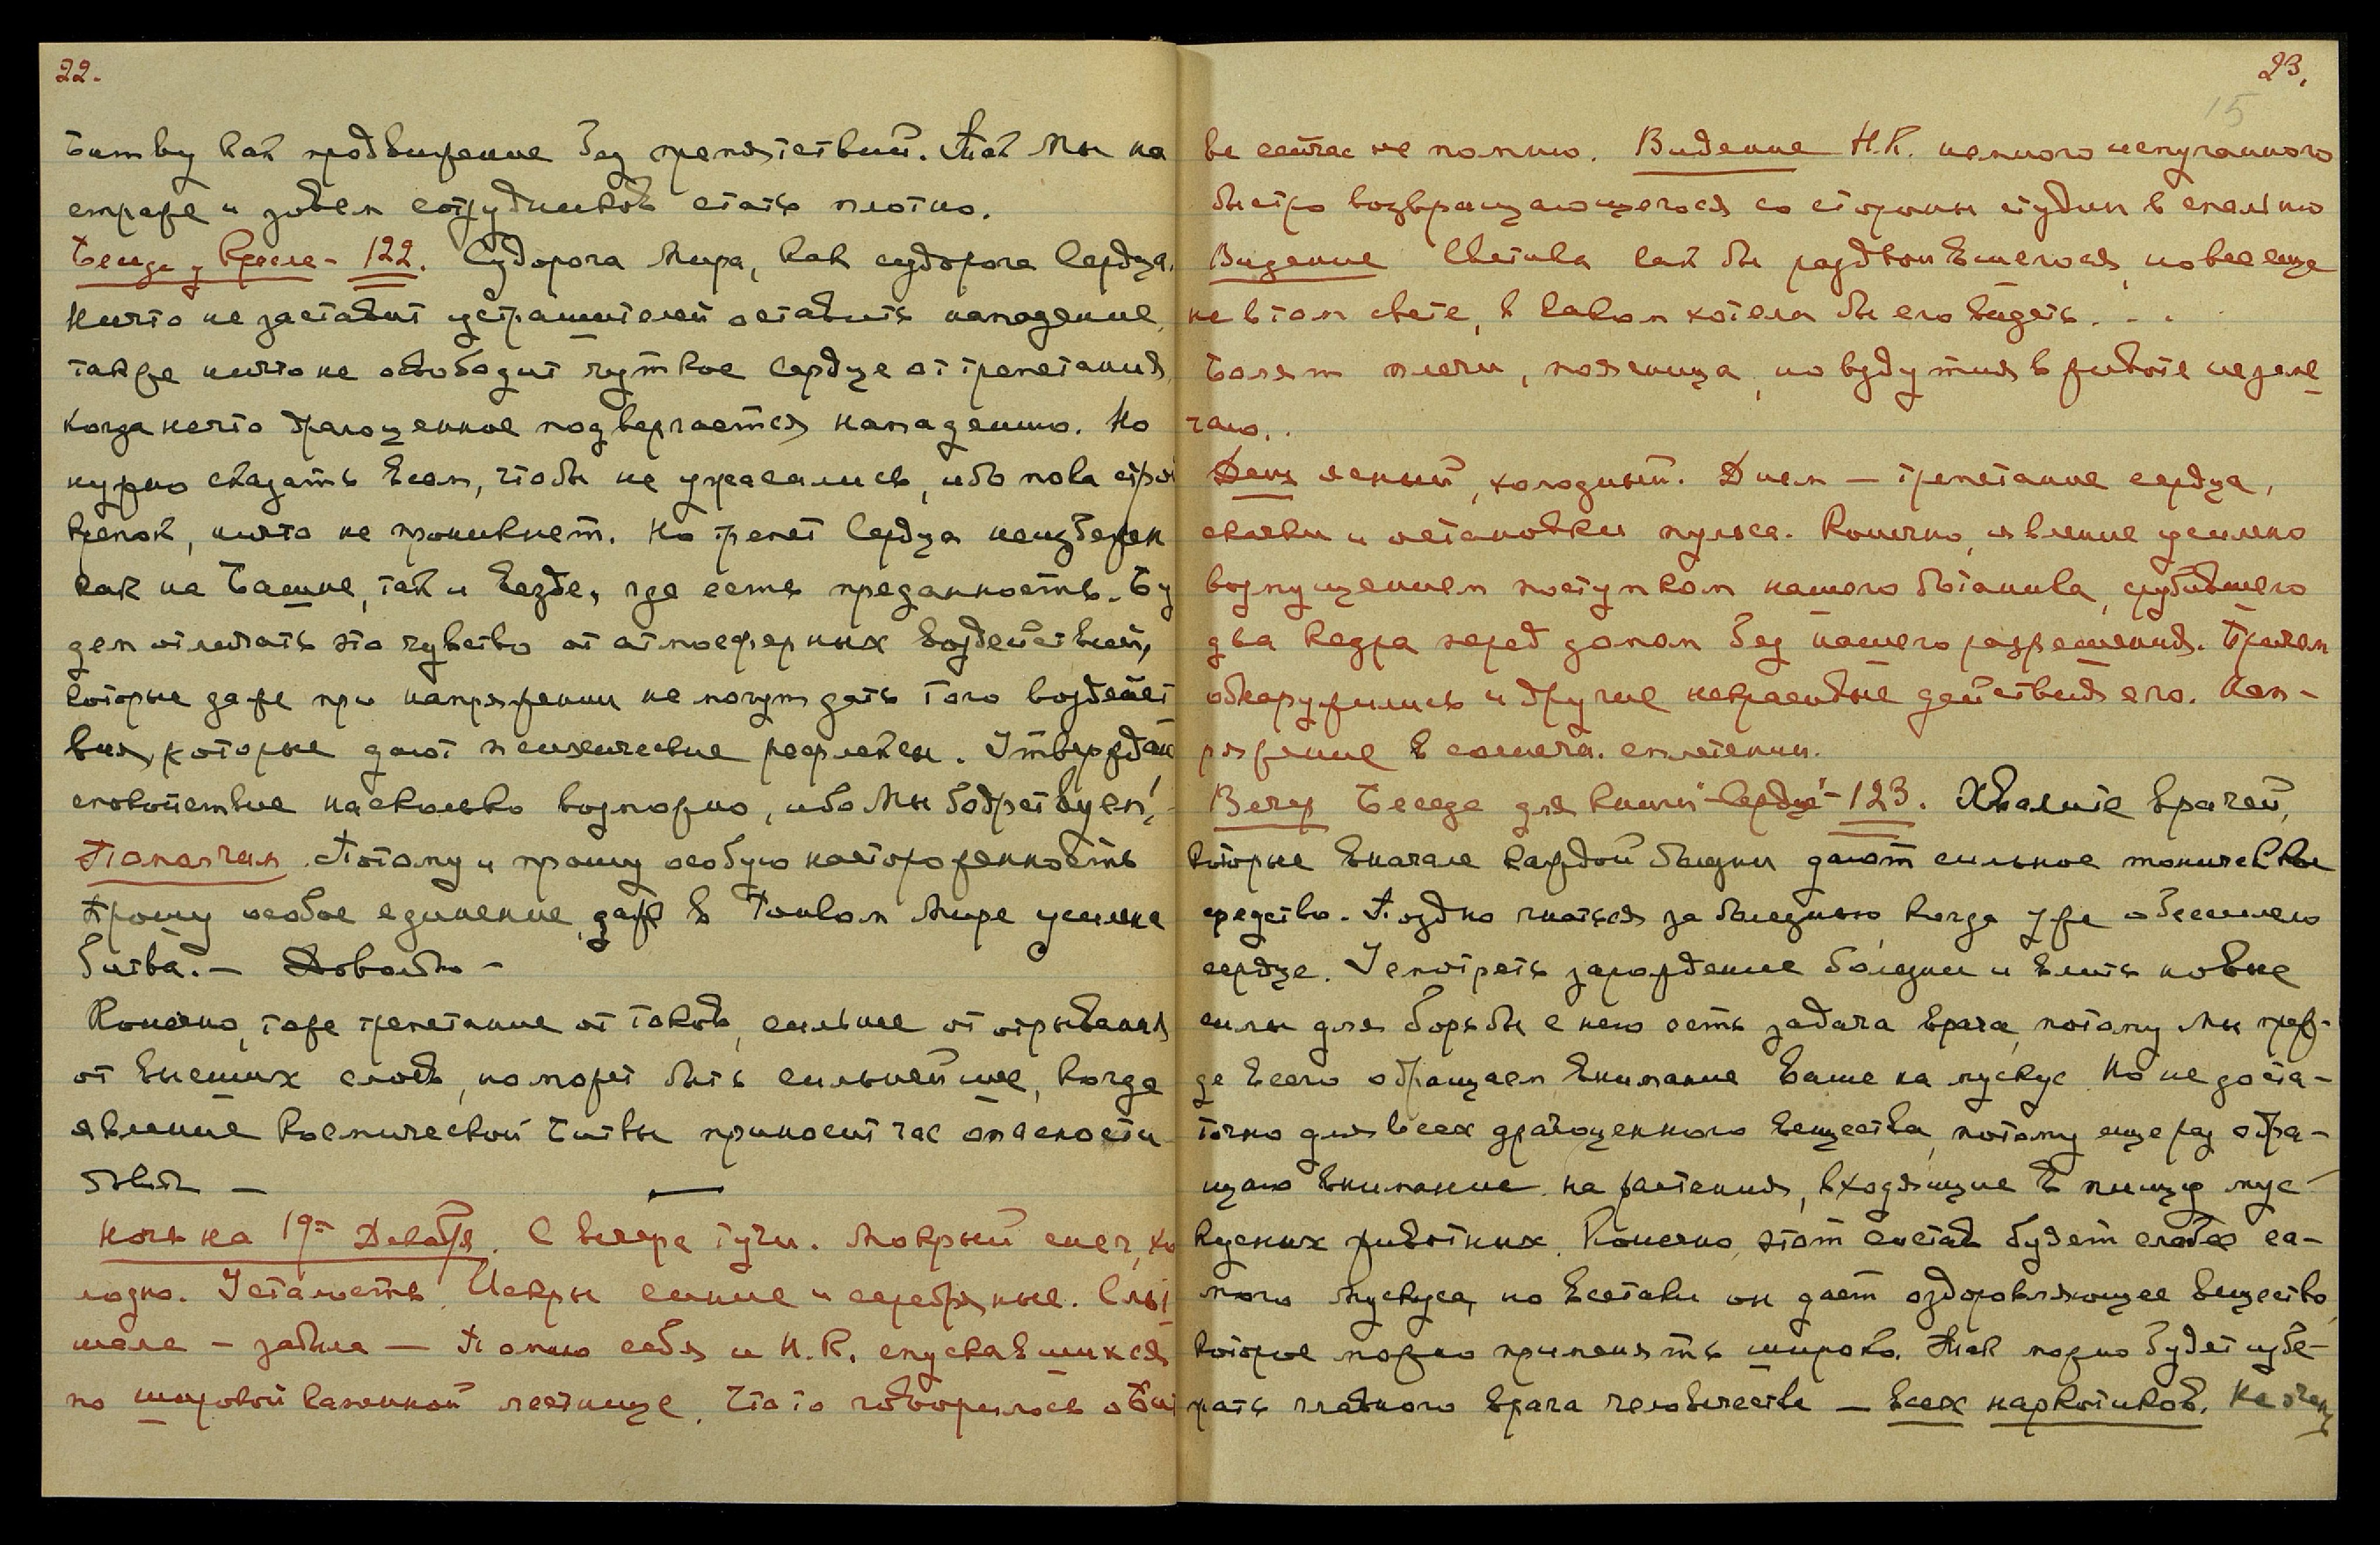 22.
битву как продвижение без препятствий. Так Мы на
страже и зовем сотрудников стать плотно.
Беседа у Кресла - 122. Судорога Мира, как судорога Сердца.
Ничто не заставит устрашителей оставить нападение,
также ничто не освободит чуткое Сердце от трепетания,
когда нечто драгоценное подвергается нападению. Но
нужно сказать Всем, чтобы не ужасались, ибо пока строй
крепок, ничто не проникнет. Но трепет Сердца неизбежен
как на Башне, так и везде, где есть преданность. Бу
дем отличать это чувство от атмосферных воздействий,
которые даже при напряжении не могут дать того воздейст
вия, которые дают психические рефлексы. Утверждаю
спокойствие насколько возможно, ибо Мы бодрствуем! -
Помолчим. Потому и прошу особую настороженность
Прошу особое единение, даже в Тонком Мире усилена
битва. - Довольно -
Конечно, тоже трепетание от токов, сильнее от отрывания
от высших слоев, но может быть сильнейшее, когда
явление Космической Битвы приносит час опасности
—
Ночь на 19-ое Декабря. С вечера тучи. Мокрый снег, хо
лодно. Усталость. Искры синие и серебряные. Слы
шала - забыла — Помню себя и Н.К. спускавшихся
по широкой каменной лестнице. Что то говорилось о Бит
23.
15
ве сейчас не помню. Видение Н.К. немного испуганного
быстро возвращающегося со стороны студии в спальню
Видение Светика как бы раздвоившегося, но все еще
не в том свете, в каком хотела бы его видеть. . .
Болят плечи, поясница, но вздутия в животе не заме
чаю. .
День ясный, холодный. Днем — трепетание сердца,
скачки и остановки пульса. Конечно, явление усилено
возмущением поступком нашего ботаника, срубившего
два кедра перед домом без нашего разрешения. Причем
обнаружились и другие некрасивые действия его. Нап-
ряжение в солнечн. сплетении.
Вечер Беседа для книги "Сердце" - 123. Хвалите врачей,
которые вначале каждой болезни дают сильное тоническое
средство. Поздно гнаться за болезнью, когда уже обессилело
сердце. Усмотреть зарождение болезни и влить новые
силы для борьбы с нею есть задача врача, потому Мы преж-
де всего обращаем внимание Ваше на мускус. Но не доста-
точно для всех драгоценного вещества, потому еще раз обра-
щаю внимание на растения, входящие в пищу мус-
кусных животных. Конечно, этот состав будет слабее са-
мого Мускуса, но все таки он дает оздоровляющее вещество,
которое можно применять широко. Так можно будет избе-
гать главного врага человечества — всех наркотиков. Не очень